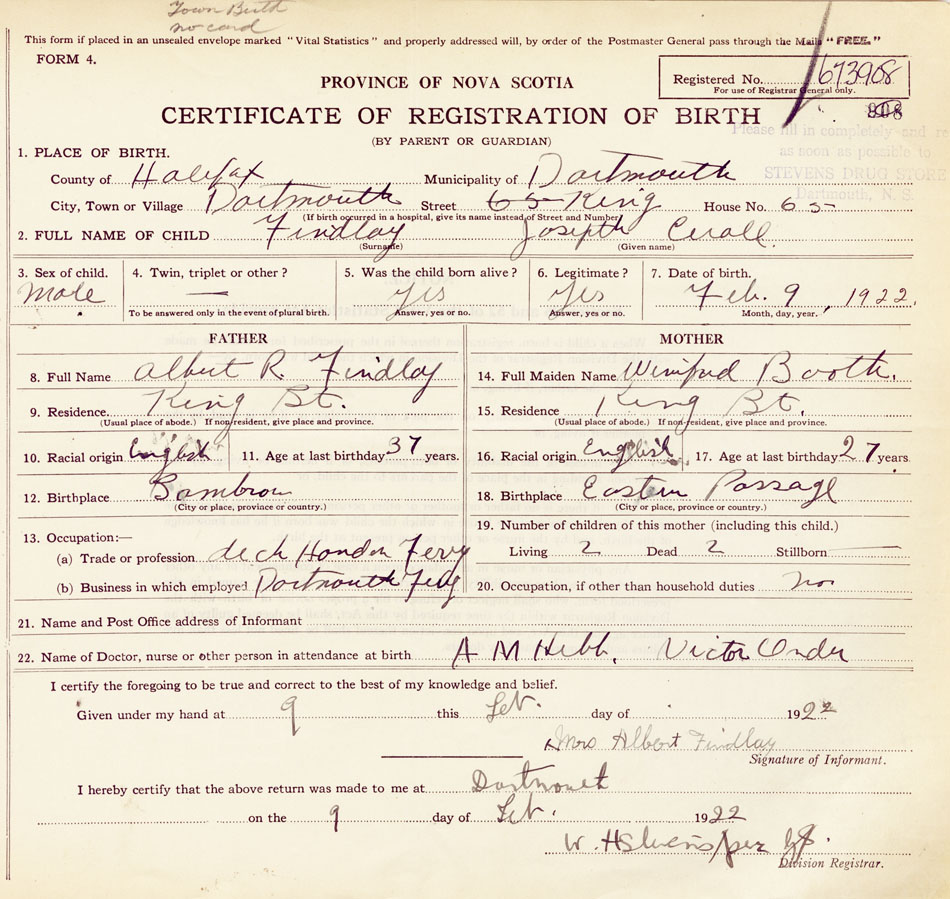 Town Birth
no card
This form if placed in an unsealed envelope marked "Vital Statistics" and properly addressed will, by order of the Postmaster General pass through the Mails "FREE."
FORM 4.
PROVINCE OF NOVA SCOTIA
Registered No. 673908
For use of Registrar General only.
CERTIFICATE OF REGISTRATION OF BIRTH
908
(BY PARENT OR GUARDIAN)
Please fill in completely and re
as soon as possible to
STEVENS DRUG STORE
Dartmouth, N. S.
1. PLACE OF BIRTH.
County of Halifax Municipality of Dartmouth
City, Town or Village Dartmouth Street 65 King House No. 65
(If birth occurred in a hospital, give its name instead of Street and Number)
2. FULL NAME OF CHILD Findlay Joseph
(Surname) (Given name)
3. Sex of child. Male
4. Twin, triplet or other? —
To be answered only in the event of plural birth.
5. Was the child born alive? Yes
Answer, yes or no.
6. Legitimate? Yes
Answer, yes or no.
7. Date of birth. Feb. 9, 1922.
Month, day, year.
FATHER
8. Full Name Albert R. Findlay
9. Residence King St.
(Usual place of abode.) If non-resident, give place and province.
10. Racial origin English 11. Age at last birthday 37 years.
12. Birthplace
(City or place, province or country.)
13. Occupation:—
(a) Trade or profession deck Ferry
(b) Business in which employed Dartmouth Fery
MOTHER
14. Full Maiden Name Winifred Booth.
15. Residence King St.
(Usual place of abode.) If non-resident, give place and province.
16. Racial origin English 17. Age at last birthday 27 years
18. Birthplace Eastern Passage
(City or place, province or country.)
19. Number of children of this mother (including this child.)
Living 2 Dead 2 Stillborn —
20. Occupation, if other than household duties no
21. Name and Post Office address of Informant
22. Name of Doctor, nurse or other person in attendance at birth A M Hebb, Victor Order
I certify the foregoing to be true and correct to the best of my knowledge and belief.
Given under my hand at 9 this Feb. day of 1922
Mrs Albert Findlay
Signature of Informant.
I hereby certify that the above return was made to me at Dartmouth
on the 9 day of Feb. 1922
W. H Stevens/per
Division Registrar.